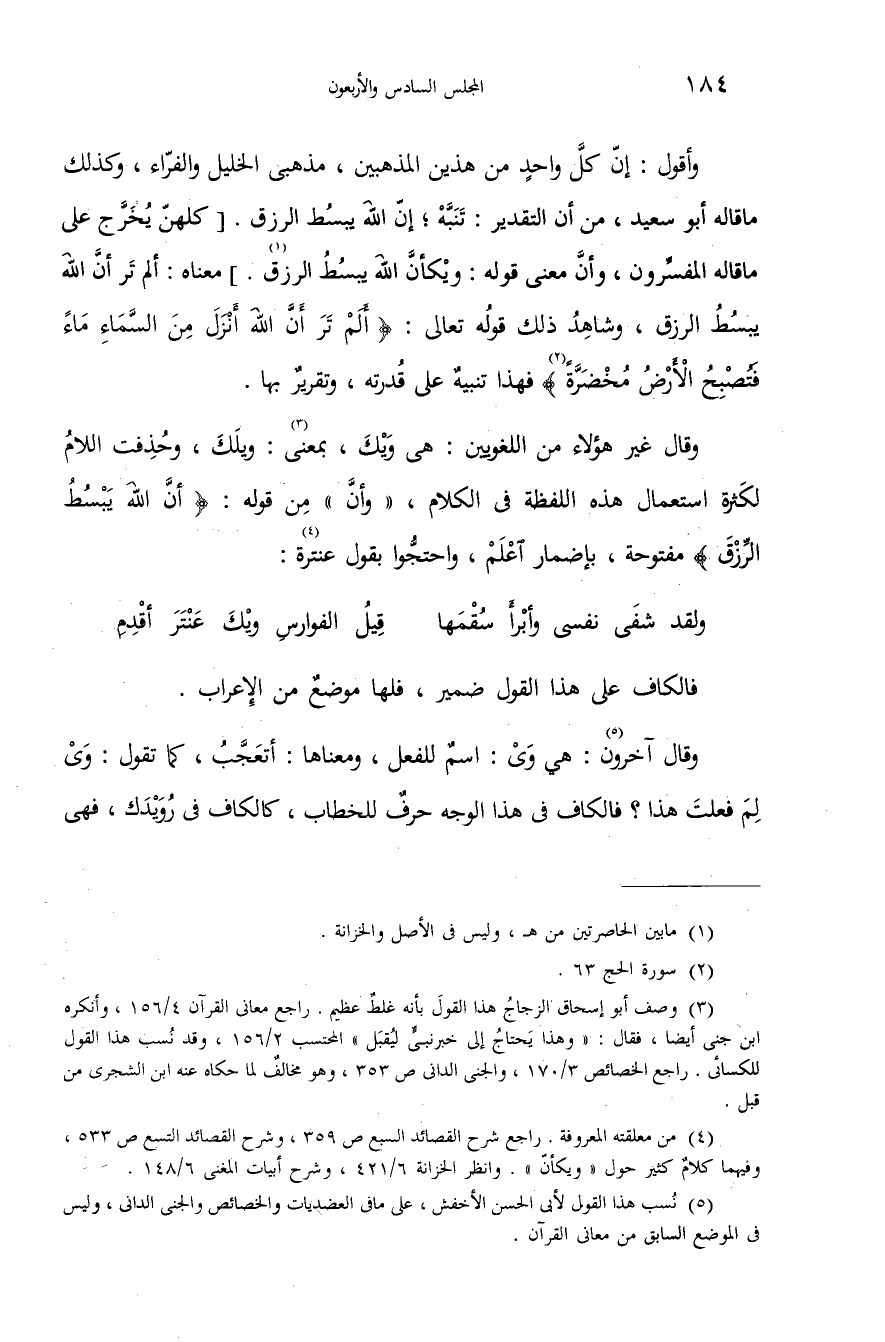 ١٨٤
المجلس السادس والأربعون
وأقول : إنّ كلَّ واحدٍ من هذين المذهبين ، مذهبى الخليل والفرّاء ، وكذلك
ماقاله أبو سعيد ، من أن التقدير : تَنَبَّهْ ؛ إنّ اللهَ يبسُط الرزق . [ كلهنّ يُخَرَّج على
ماقاله المفسِّرون ، وأنَّ معنى قوله : ويْكأنَّ اللهَ يبسُطُ الرزقَ (١) . ] معناه : ألم تَر أنَّ اللهَ
يبسُطُ الرزق ، وشاهِدُ ذلك قولُه تعالى : ﴿ أَلَمْ تَرَ أَنَّ اللهَ أَنْزَلَ مِنَ السَّمَاءِ مَاءً
فَتُصْبِحُ الْأَرْضُ مُخْضَرَّةً (٢) ﴾ فهذا تنبيهٌ على قُدرته ، وتقريرٌ بها .
وقال غير هؤلاء من اللغويين : هى وَيْكَ ، بمعنى (٣) : ويلَكَ ، وحُذِفت اللامُ
لكَثرة استعمال هذه اللفظة فى الكلام ، « وأنَّ » مِن قوله : ﴿ أنَّ اللهَ يَبْسُطُ
الرِّزْقَ ﴾ مفتوحة ، بإضمار آعْلَمْ ، واحتجُّوا بقول عنترة (٤) :
ولقد شفَى نفسى وأبْرأَ سُقْمَها قِيلُ الفوارسِ ويْكَ عَنْتَرَ أقْدِمِ
فالكاف على هذا القول ضمير ، فلها موضعٌ من الإِعراب .
وقال آخرون (٥) : هي وَىْ : اسمٌ للفعل ، ومعناها : أتعَجَّبُ ، كما تقول : وَىْ
لِمَ فعلتَ هذا ؟ فالكاف فى هذا الوجه حرفٌ للخطاب ، كالكاف فى رُوَيْدَك ، فهى
(١) مابين الحاصرتين من هـ ، وليس فى الأصل والخزانة .
(٢) سورة الحج ٦٣ .
(٣) وصف أبو إسحاق الزجاجُ هذا القولَ بأنه غلطٌ عظيم . راجع معانى القرآن ١٥٦/٤ ، وأنكره
ابن جنى أيضا ، فقال : « وهذا يَحتاجُ إلى خبرنبىٍّ ليُقبَل » المحتسب ١٥٦/٢ ، وقد نُسب هذا القول
للكسائى . راجع الخصائص ١٧٠/٣ ، والجنى الدانى ص ٣٥٣ ، وهو مخالفٌ لما حكاه عنه ابن الشجرى من
قبل .
(٤) من معلقته المعروفة . راجع شرح القصائد السبع ص ٣٥٩ ، وشرح القصائد التسع ص ٥٣٣ ،
وفيهما كلامٌ كثير حول « ويكأنّ » . وانظر الخزانة ٤٢١/٦ ، وشرح أبيات المغنى ١٤٨/٦ .
(٥) نُسب هذا القول لأبى الحسن الأخفش ، على مافى العضديات والخصائص والجنى الدانى ، وليس
فى الموضع السابق من معانى القرآن .